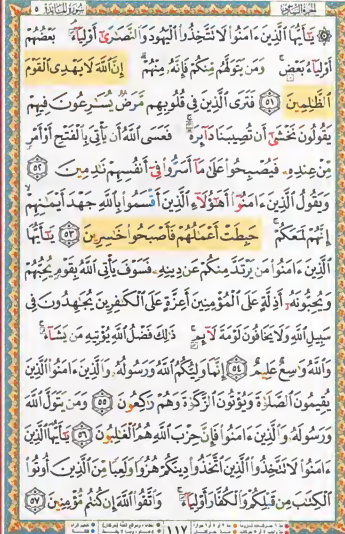 ۞ يَٰٓأَيُّهَا ٱلَّذِينَ ءَامَنُوا۟ لَا تَتَّخِذُوا۟ ٱلْيَهُودَ وَٱلنَّصَٰرَىٰٓ أَوْلِيَآءَ ۘ بَعْضُهُمْ
أَوْلِيَآءُ بَعْضٍ ۚ وَمَن يَتَوَلَّهُم مِّنكُمْ فَإِنَّهُۥ مِنْهُمْ ۗ إِنَّ ٱللَّهَ لَا يَهْدِى ٱلْقَوْمَ
ٱلظَّٰلِمِينَ ٥١ فَتَرَى ٱلَّذِينَ فِى قُلُوبِهِم مَّرَضٌ يُسَٰرِعُونَ فِيهِمْ
يَقُولُونَ نَخْشَىٰٓ أَن تُصِيبَنَا دَآئِرَةٌ ۚ فَعَسَى ٱللَّهُ أَن يَأْتِىَ بِٱلْفَتْحِ أَوْ أَمْرٍ
مِّنْ عِندِهِۦ فَيُصْبِحُوا۟ عَلَىٰ مَآ أَسَرُّوا۟ فِىٓ أَنفُسِهِمْ نَٰدِمِينَ ٥٢
وَيَقُولُ ٱلَّذِينَ ءَامَنُوٓا۟ أَهَٰٓؤُلَآءِ ٱلَّذِينَ أَقْسَمُوا۟ بِٱللَّهِ جَهْدَ أَيْمَٰنِهِمْ ۙ
إِنَّهُمْ لَمَعَكُمْ ۚ حَبِطَتْ أَعْمَٰلُهُمْ فَأَصْبَحُوا۟ خَٰسِرِينَ ٥٣ يَٰٓأَيُّهَا
ٱلَّذِينَ ءَامَنُوا۟ مَن يَرْتَدَّ مِنكُمْ عَن دِينِهِۦ فَسَوْفَ يَأْتِى ٱللَّهُ بِقَوْمٍ يُحِبُّهُمْ
وَيُحِبُّونَهُۥٓ أَذِلَّةٍ عَلَى ٱلْمُؤْمِنِينَ أَعِزَّةٍ عَلَى ٱلْكَٰفِرِينَ يُجَٰهِدُونَ فِى
سَبِيلِ ٱللَّهِ وَلَا يَخَافُونَ لَوْمَةَ لَآئِمٍ ۚ ذَٰلِكَ فَضْلُ ٱللَّهِ يُؤْتِيهِ مَن يَشَآءُ ۚ
وَٱللَّهُ وَٰسِعٌ عَلِيمٌ ٥٤ إِنَّمَا وَلِيُّكُمُ ٱللَّهُ وَرَسُولُهُۥ وَٱلَّذِينَ ءَامَنُوا۟ ٱلَّذِينَ
يُقِيمُونَ ٱلصَّلَوٰةَ وَيُؤْتُونَ ٱلزَّكَوٰةَ وَهُمْ رَٰكِعُونَ ٥٥ وَمَن يَتَوَلَّ ٱللَّهَ
وَرَسُولَهُۥ وَٱلَّذِينَ ءَامَنُوا۟ فَإِنَّ حِزْبَ ٱللَّهِ هُمُ ٱلْغَٰلِبُونَ ٥٦ يَٰٓأَيُّهَا ٱلَّذِينَ
ءَامَنُوا۟ لَا تَتَّخِذُوا۟ ٱلَّذِينَ ٱتَّخَذُوا۟ دِينَكُمْ هُزُوًا وَلَعِبًا مِّنَ ٱلَّذِينَ أُوتُوا۟
ٱلْكِتَٰبَ مِن قَبْلِكُمْ وَٱلْكُفَّارَ أَوْلِيَآءَ ۚ وَٱتَّقُوا۟ ٱللَّهَ إِن كُنتُم مُّؤْمِنِينَ ٥٧
١١٧